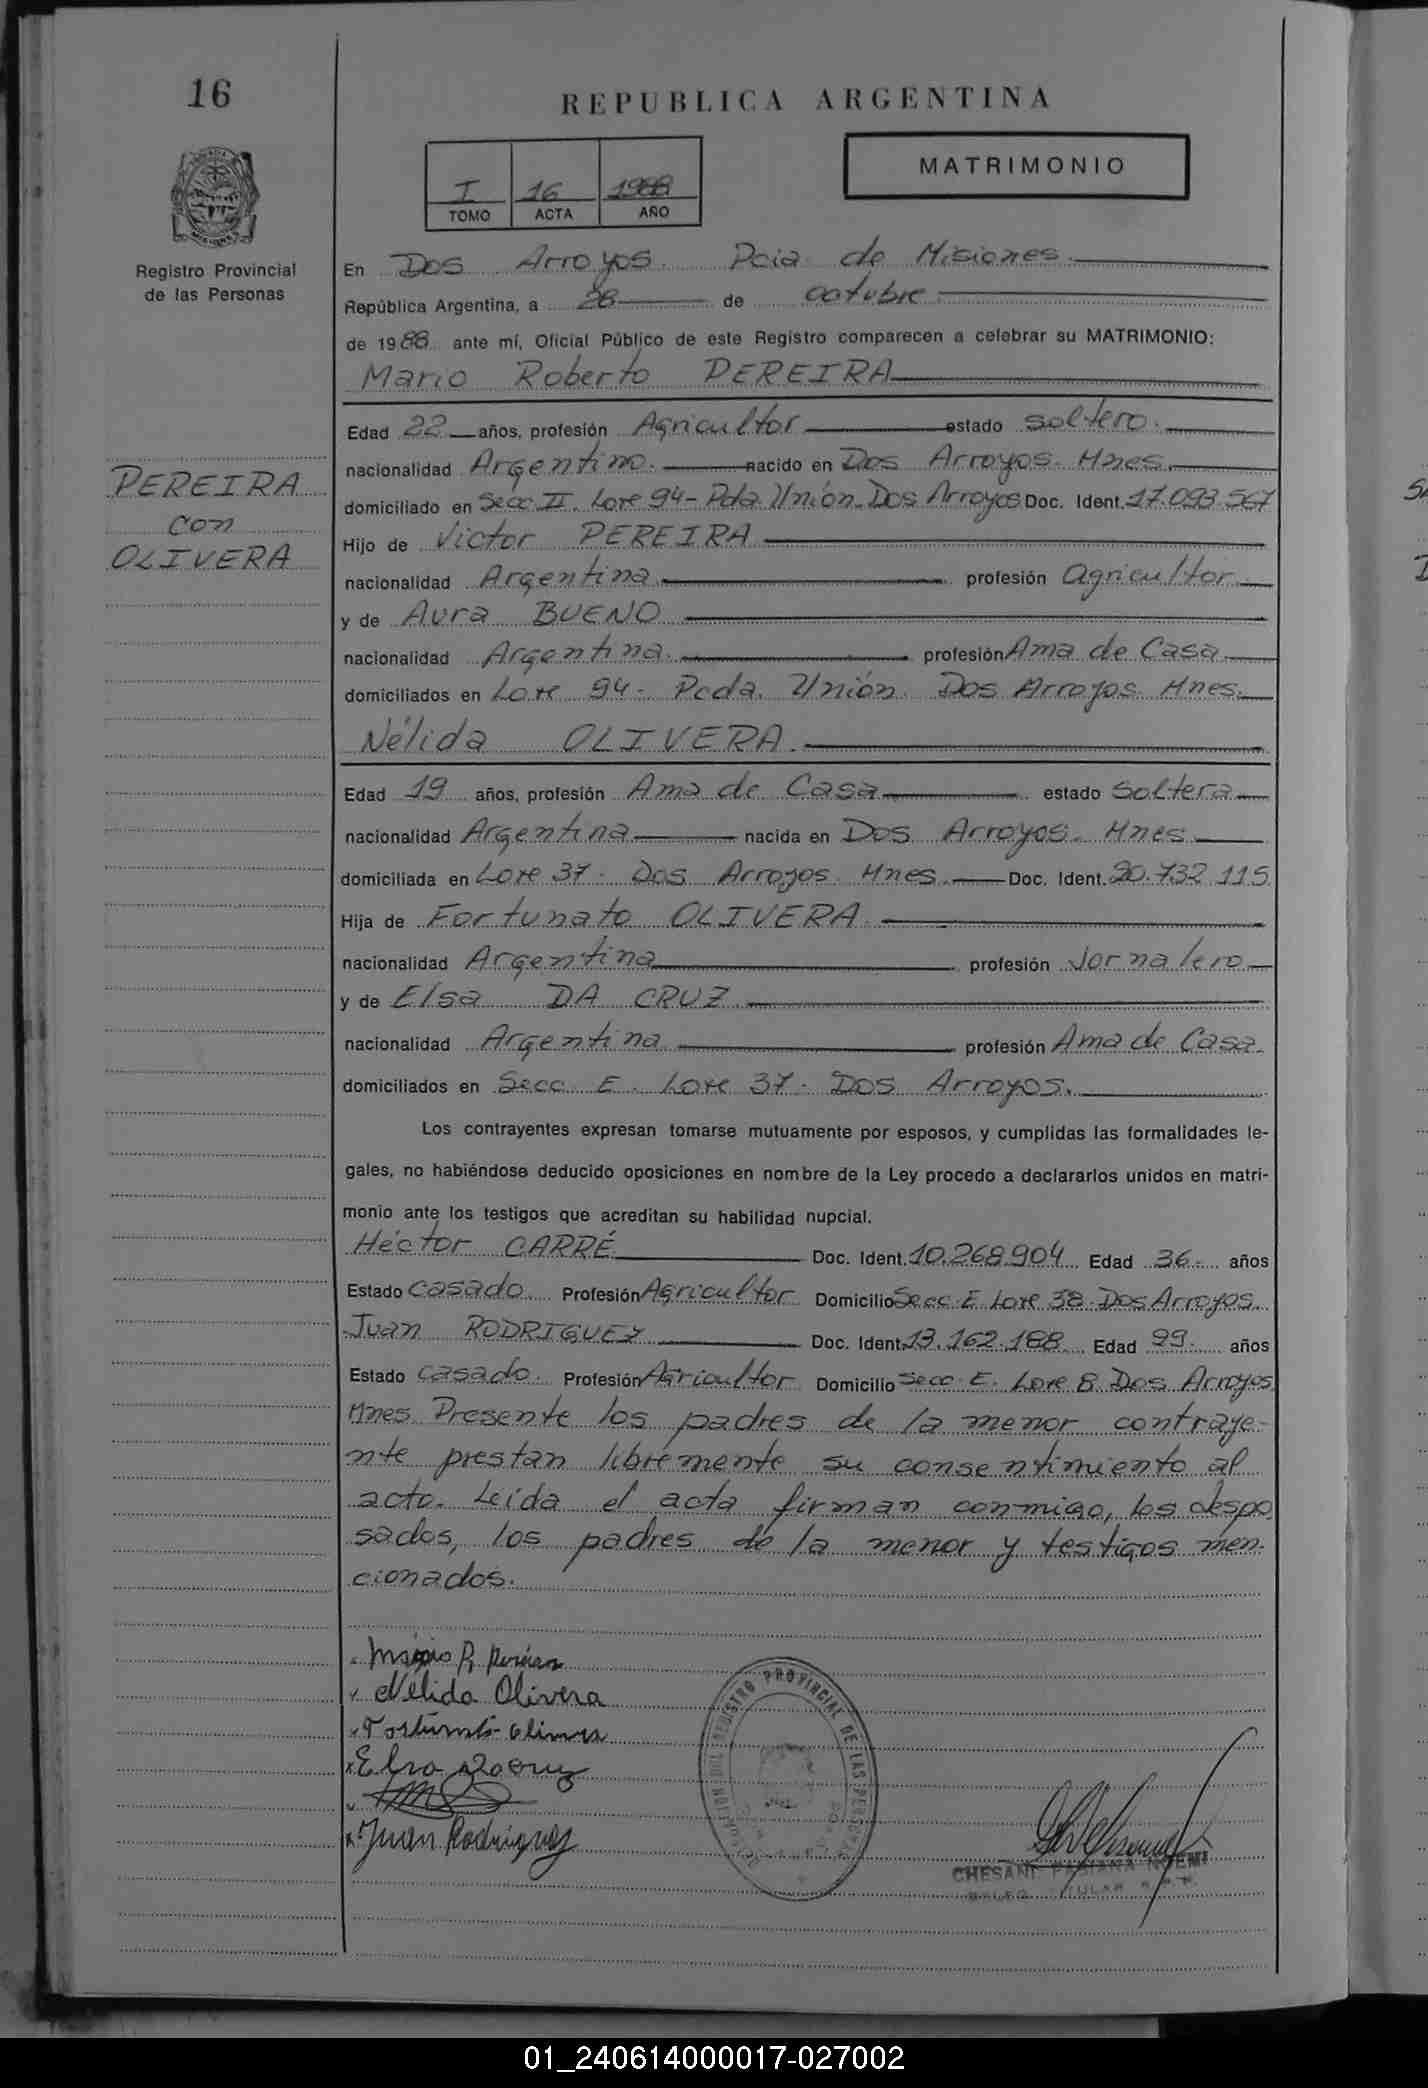 16
REPUBLICA ARGENTINA
MATRIMONIO
I 16 1988
TOMO ACTA AÑO
Registro Provincial
de las Personas
En Dos Arroyos. Pcia de Misiones.
República Argentina, a 28 de octubre
de 1988 ante mí, Oficial Público de este Registro comparecen a celebrar su MATRIMONIO:
Mario Roberto PEREIRA
Edad 22 años, profesión Agricultor estado soltero.
nacionalidad Argentino. nacido en Dos Arroyos. Mnes.
domiciliado en Secc II. Lote 94- Pda. Unión. Dos Arroyos Doc. Ident. 17.093.567
Hijo de Victor PEREIRA
nacionalidad Argentina profesión agricultor
y de Aura BUENO
nacionalidad Argentina. profesión Ama de Casa
domiciliados en Lote 94- Pcda. Unión. Dos Arroyos Mnes.
PEREIRA
con
OLIVERA
Nélida OLIVERA.
Edad 19 años, profesión Ama de Casa estado soltera
nacionalidad Argentina nacida en Dos Arroyos. Mnes
domiciliada en Lote 37. Dos Arroyos Mnes. Doc. Ident. 20.732.115
Hija de Fortunato OLIVERA
nacionalidad Argentina profesión Jornalero
y de Elsa DA CRUZ
nacionalidad Argentina profesión Ama de Casa.
domiciliados en Secc. E. Lote 37. Dos Arroyos.
Los contrayentes expresan tomarse mutuamente por esposos, y cumplidas las formalidades le-
gales, no habiéndose deducido oposiciones en nombre de la Ley procedo a declararlos unidos en matri-
monio ante los testigos que acreditan su habilidad nupcial.
Héctor CARRÉ Doc. Ident. 10.268.904 Edad 36. años
Estado casado. Profesión Agricultor Domicilio Secc. E Lote 38. Dos Arroyos.
Juan RODRIGUEZ Doc. Ident. 13.162.188 Edad 29. años
Estado casado. Profesión Agricultor Domicilio Secc. E. Lote 8 Dos Arroyos
Mnes. Presente los padres de la menor contraye-
nte prestan libremente su consentimiento al
acto. Leída el acta firman conmigo, los despo
sados, los padres de la menor y testigos men-
cionados.
Mario R. Pereira
Nélida Olivera
Fortunato Olivera
Elsa Da Cruz
Juan Rodriguez
REGISTRO PROVINCIAL DE LAS PERSONAS
CHESANI FABIANA NOEMI
TITULAR
01_240614000017-027002